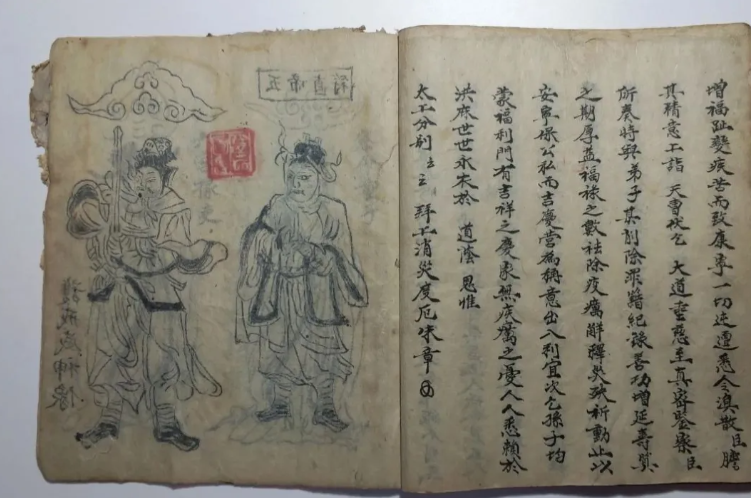 增福趾變疾苦而致康寧一切迍邅悉令渙散臣謄
其精意上詣 天曹伏乞 大道垂慈至真 鑒察臣
所奏特與弟子某削除罪籍紀錄善功增延壽筭
之期厚益福祿之數祛除疫癘解釋災 祈動止以
安寧保公私而吉慶營為稱意出入利宜次乞孫子均
蒙福利門有吉祥之慶家無疾癘之憂人人悉賴於
洪庥世世永衣於 道蔭 恩惟
太上分別 拜上消災度厄朱章
五帝直符
護戒威神像